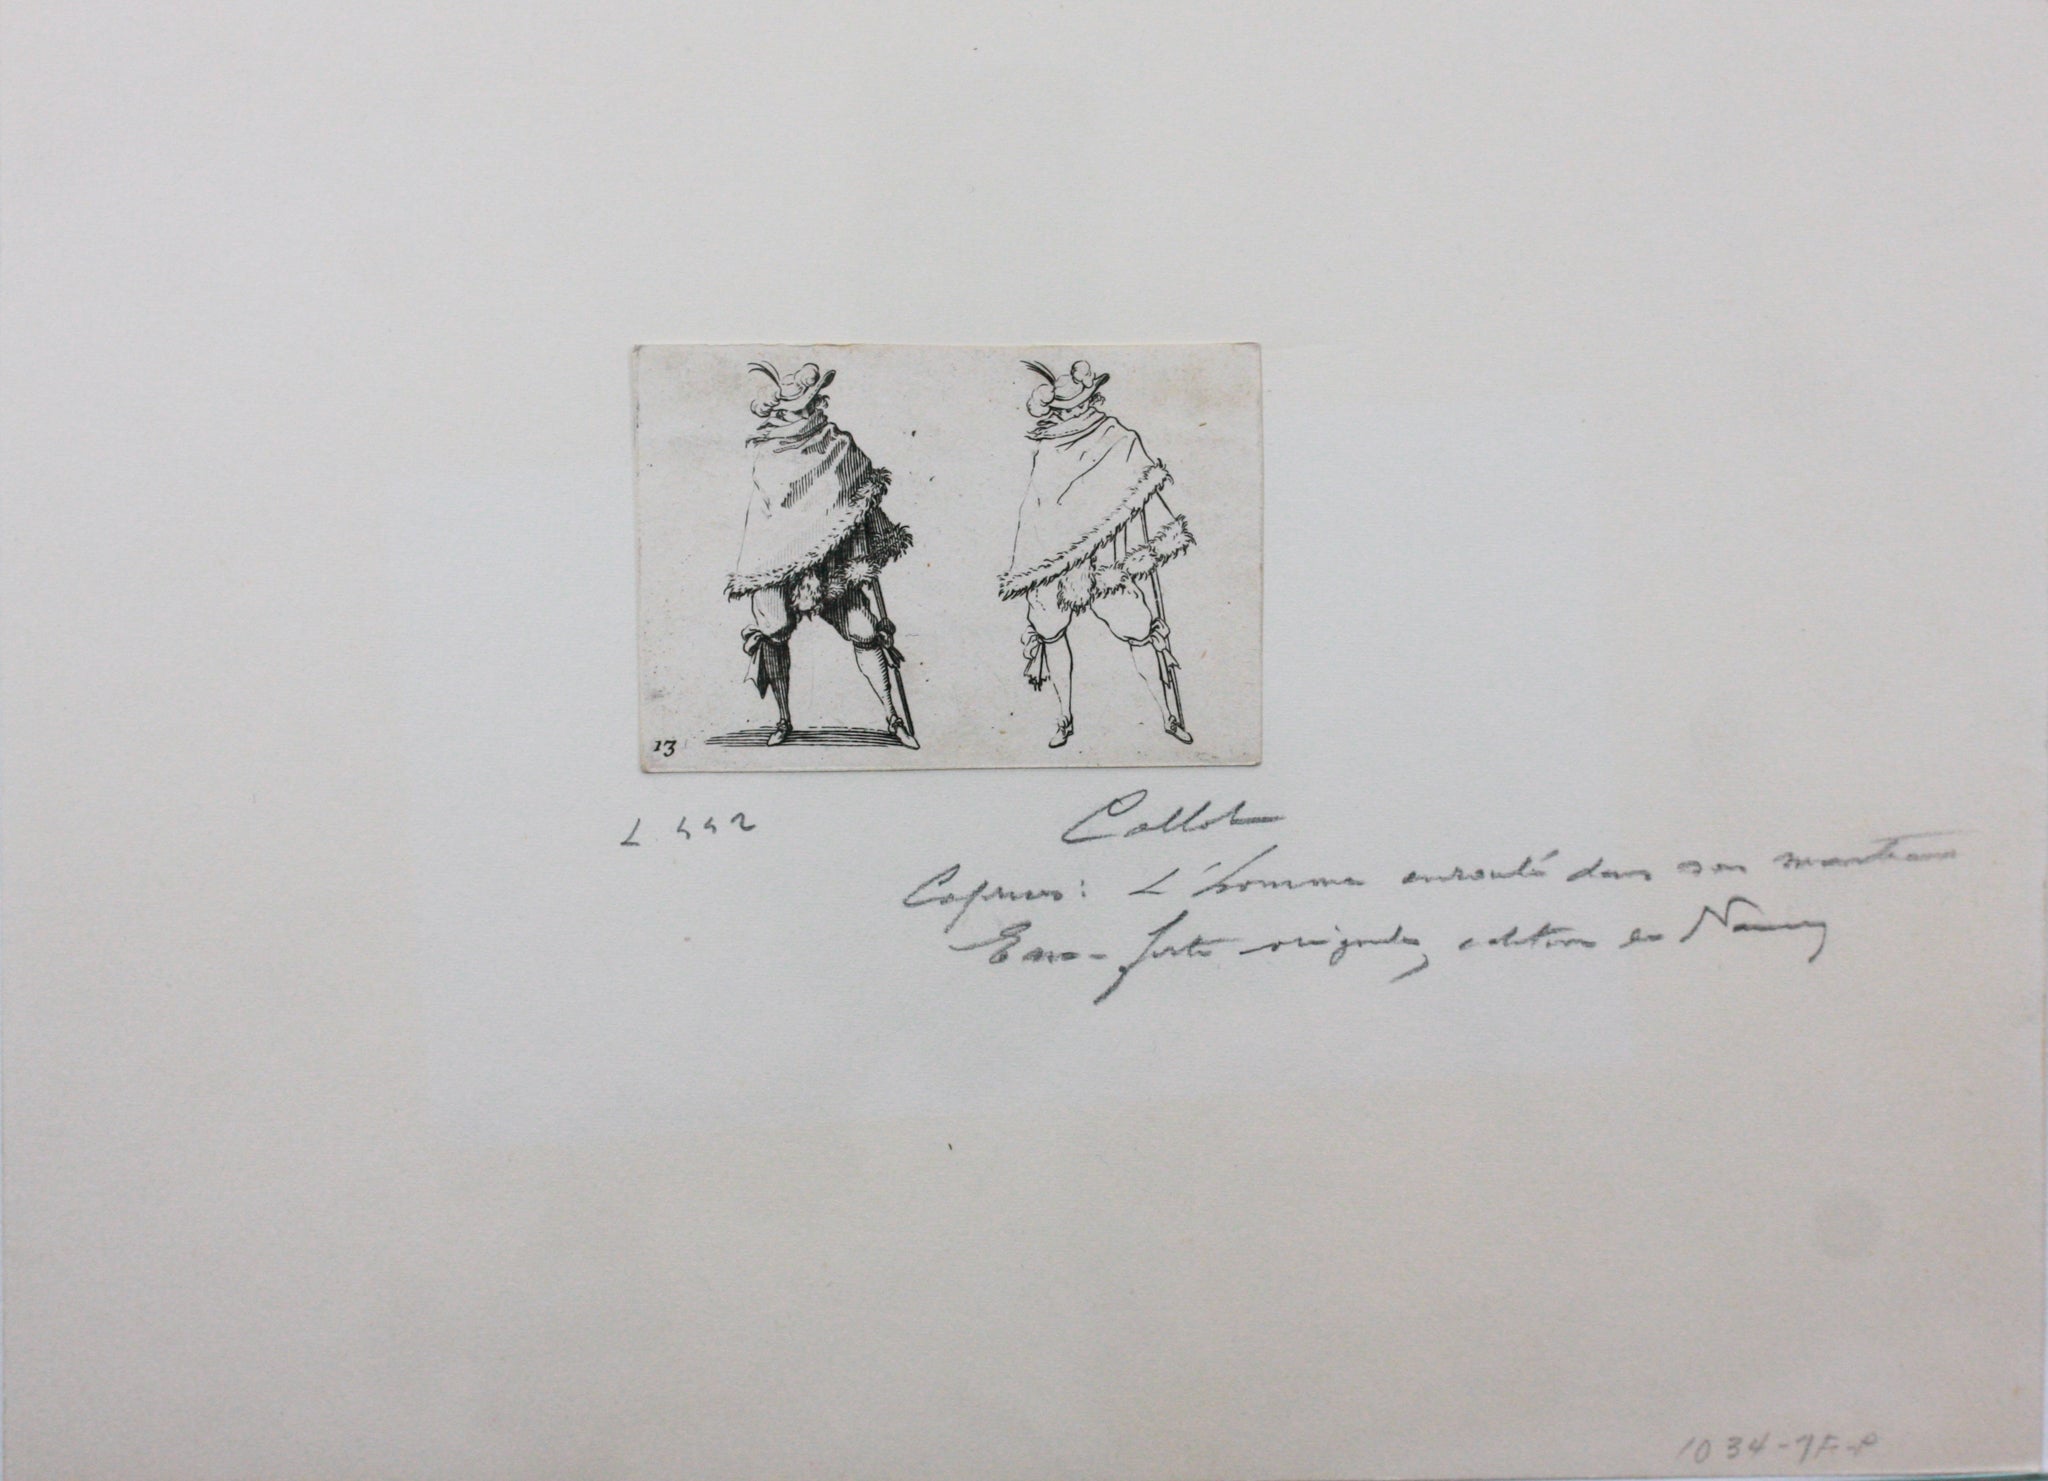 13
L. 442
Callot
Caprices: L'homme enroulé dans son manteau
Eau-forte originale, edition de Nancy
1034-7F-P